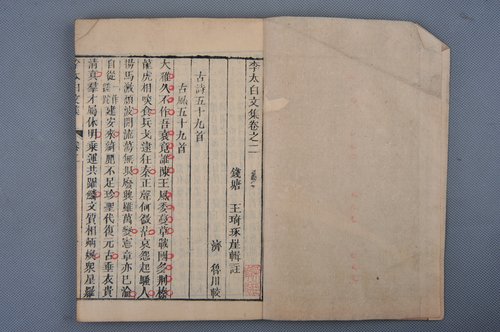 李太白文集卷之二
錢塘 王琦琢崖輯註
濟 魯川較
古詩五十九首
古風五十九首
大雅久不作吾衰竟誰陳王風委蔓草戰國多荆榛
龍虎相啖食兵戈逮狂秦正聲何微茫哀怨起騷人
揚馬激頹波開流蕩無垠廢興雖萬變憲章亦已淪
自從一作建安來綺麗不足珍聖代復元古垂衣貴
清眞羣才屬休明乘運共躍鱗文質相炳煥衆星羅
李太白文集